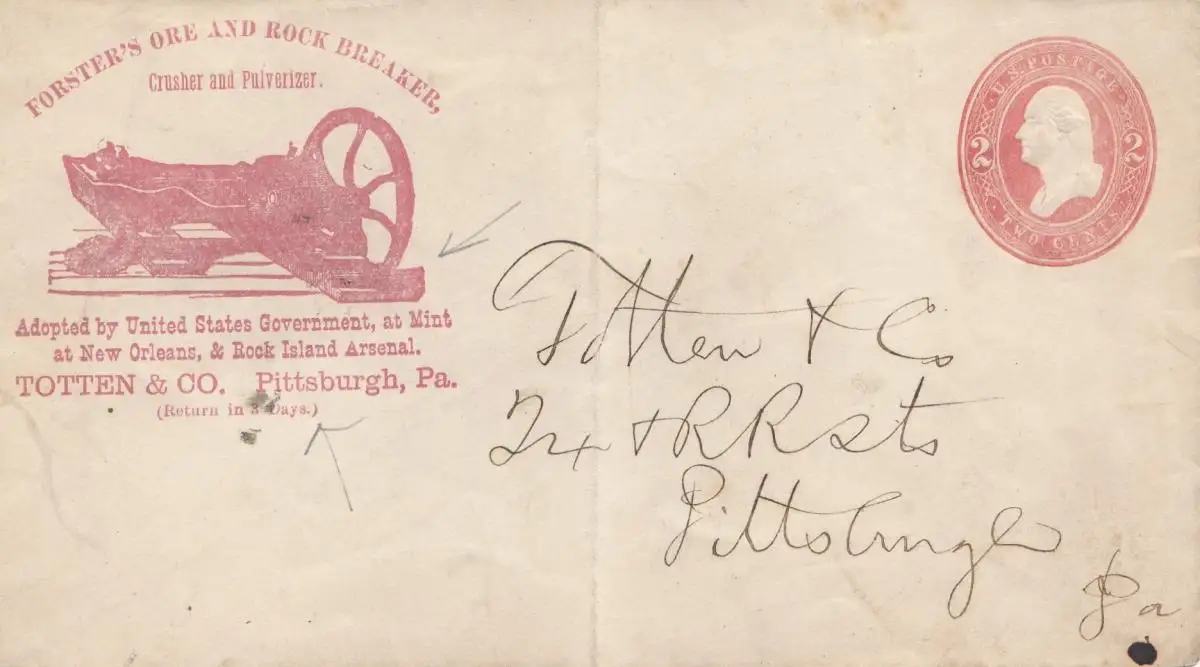 FORSTER'S ORE AND ROCK BREAKER,
Crusher and Pulverizer.
Adopted by United States Government, at Mint
at New Orleans, & Rock Island Arsenal.
TOTTEN & CO. Pittsburgh, Pa.
(Return in 3 Days.)
U.S. POSTAGE
2 2
TWO CENTS
Totten & Co
24 & RR Sts
Pittsburgh
Pa